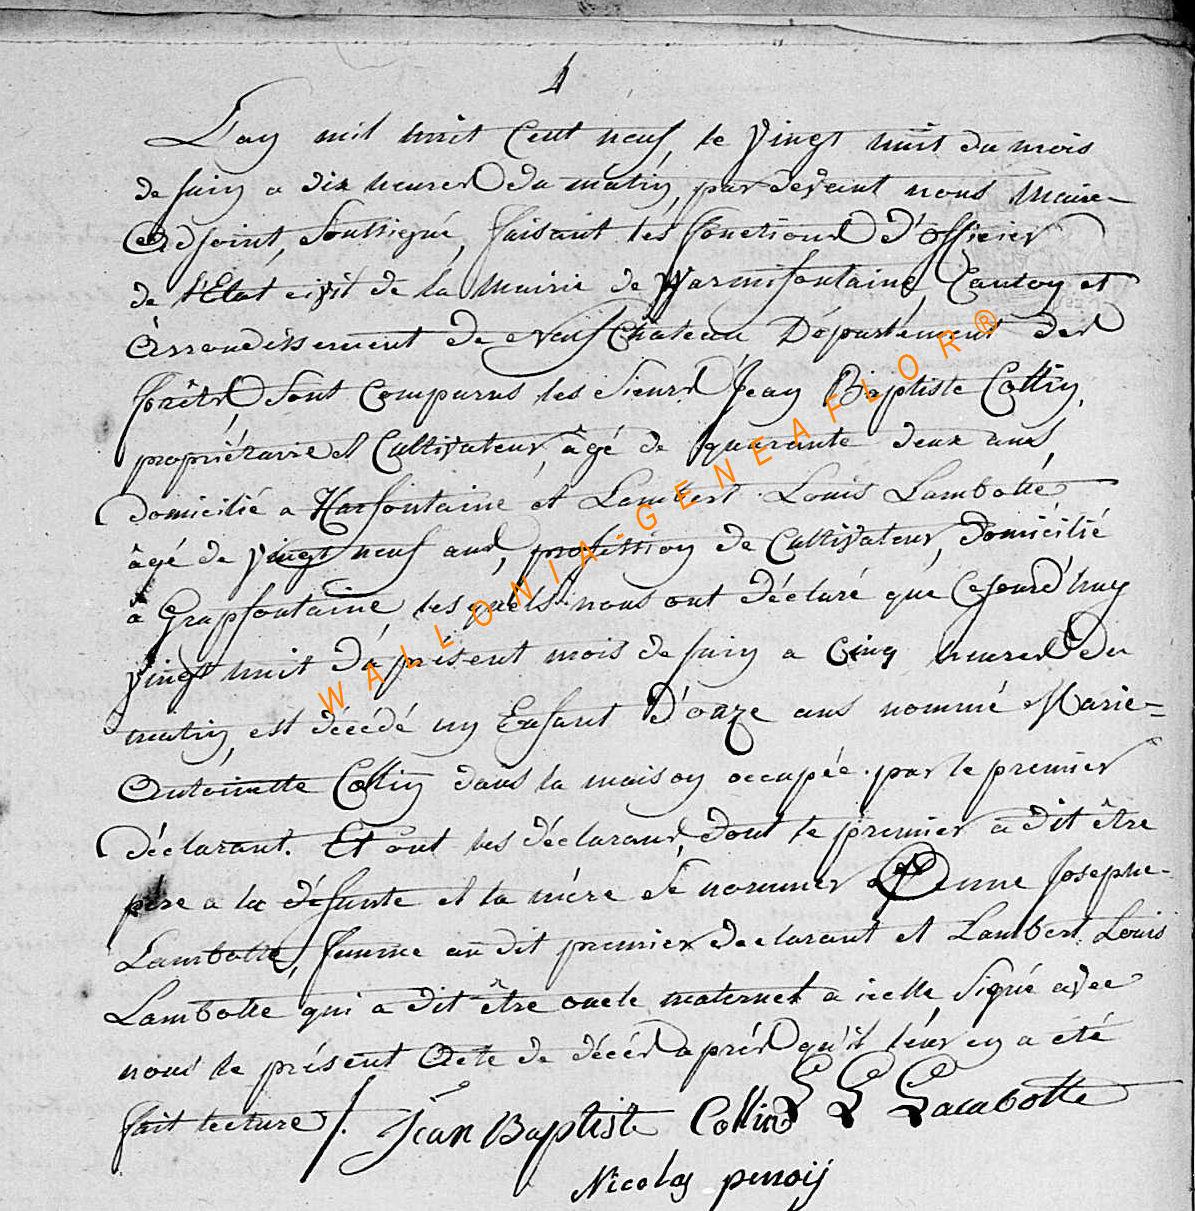 4
L'an mil huit Cent neuf, le vingt huit du mois
de juin a dix heures du matin, par devant nous Maire
Adjoint, Soussigné, faisant les fonctions d'officier
de l'Etat civil de la Mairie de Warmifontaine, Canton et
Arrondissement de Neufchateau Département des
forêts, Sont Comparus les Sieurs Jean Baptiste Collin,
propriétaire et Cultivateur, âgé de quarante deux ans,
Domicilié a Harfontaine et Lambert Louis Lambotte
âgé de vingt neuf ans, profession de Cultivateur, domicilié
à Grapfontaine, lesquels nous ont déclaré que Cejourd'huy
vingt huit du présent mois de juin a Cinq heures du
matin, est décédé un Enfant D'onze ans nommé Marie=
Antoinette Collin dans la maison occupée par le premier
déclarant. Et ont les déclarans, dont le premier a dit être
père a la défunte et la mère se nommer Anne Josephe
Lambotte, femme au dit premier declarant et Lambert Louis
Lambotte qui a dit être oncle maternel a icelle Signé avec
nous le présent Acte de décés après qu'il leur en a été
fait lecture /. Jean Baptiste Collin L L Lambotte
Nicolas penoij
WALLONIA-GENEAFLOR®